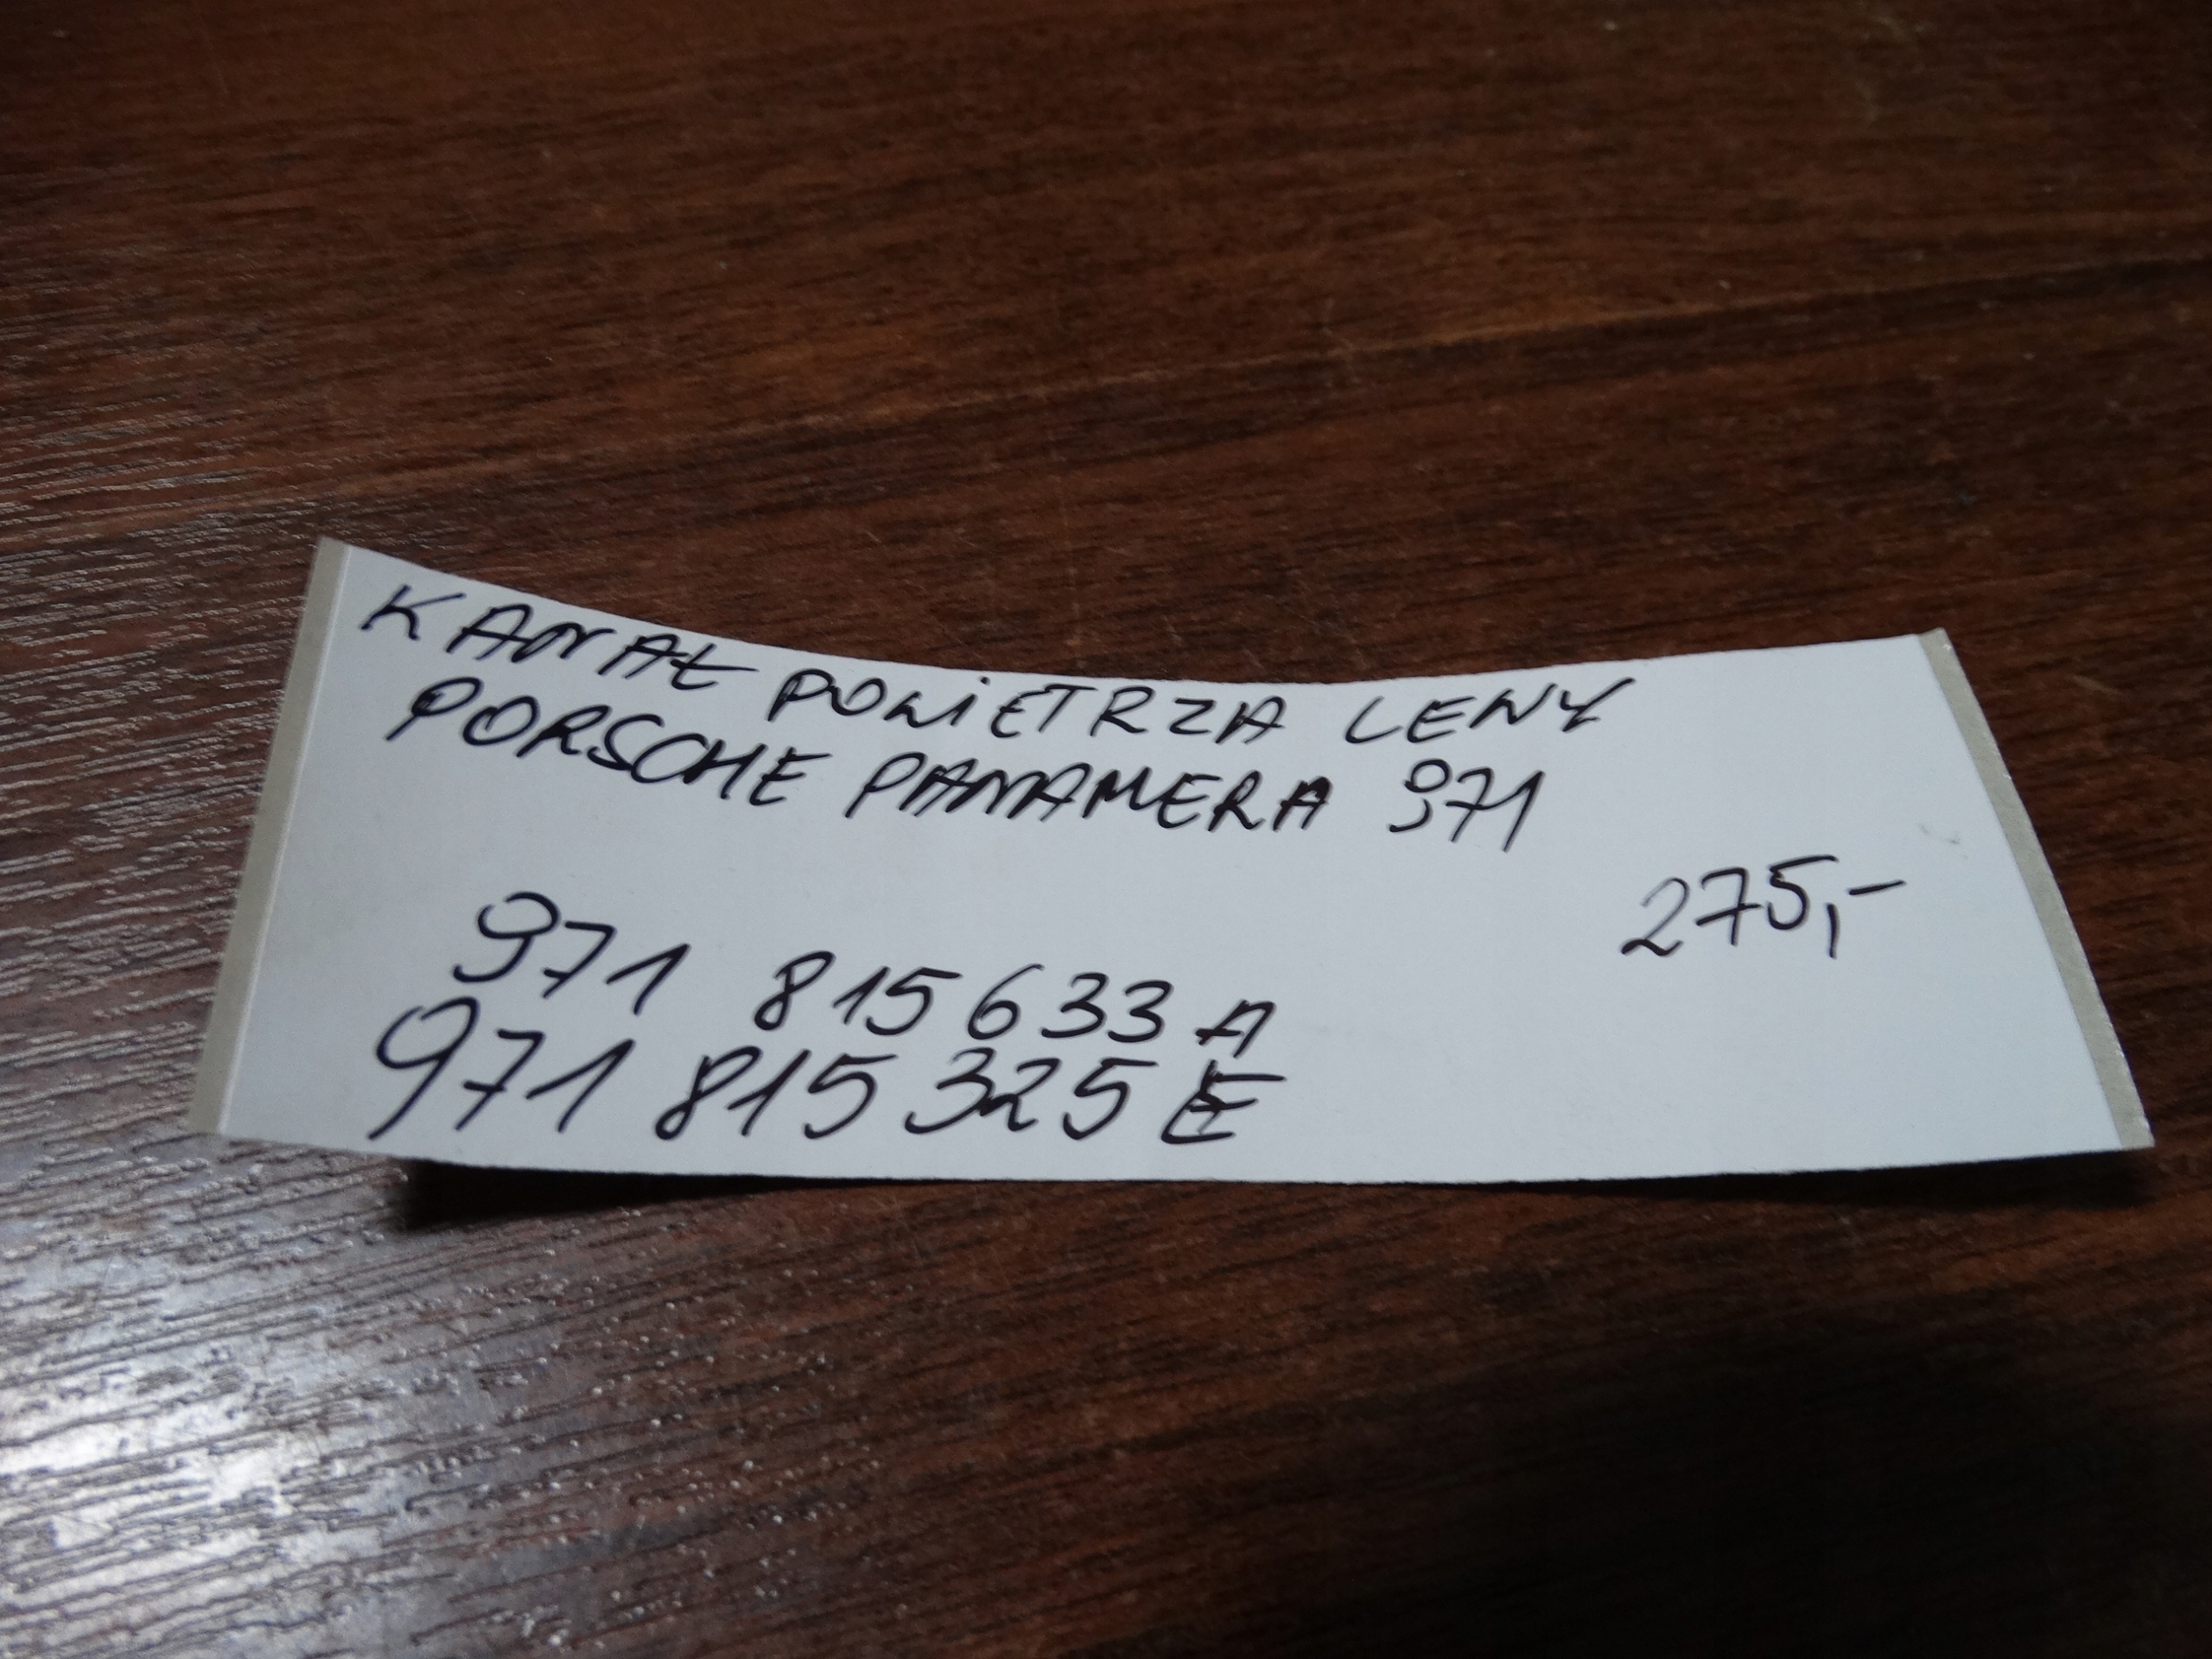 KANAŁ POWIETRZA LEWY
PORSCHE PANAMERA 971
275,-
971 815 633 A
971 815 325 E